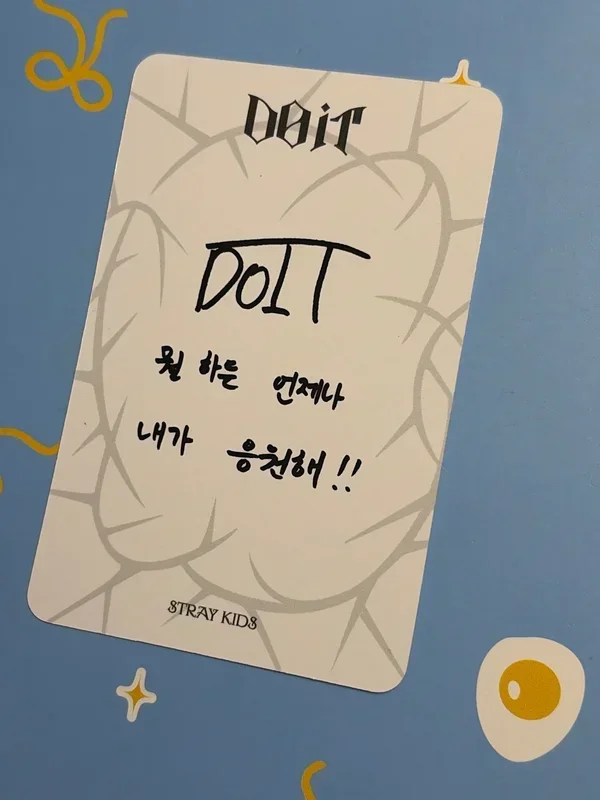 DOiT
DOIT
뭘 하든 언제나
내가 응원해!!
STRAY KIDS